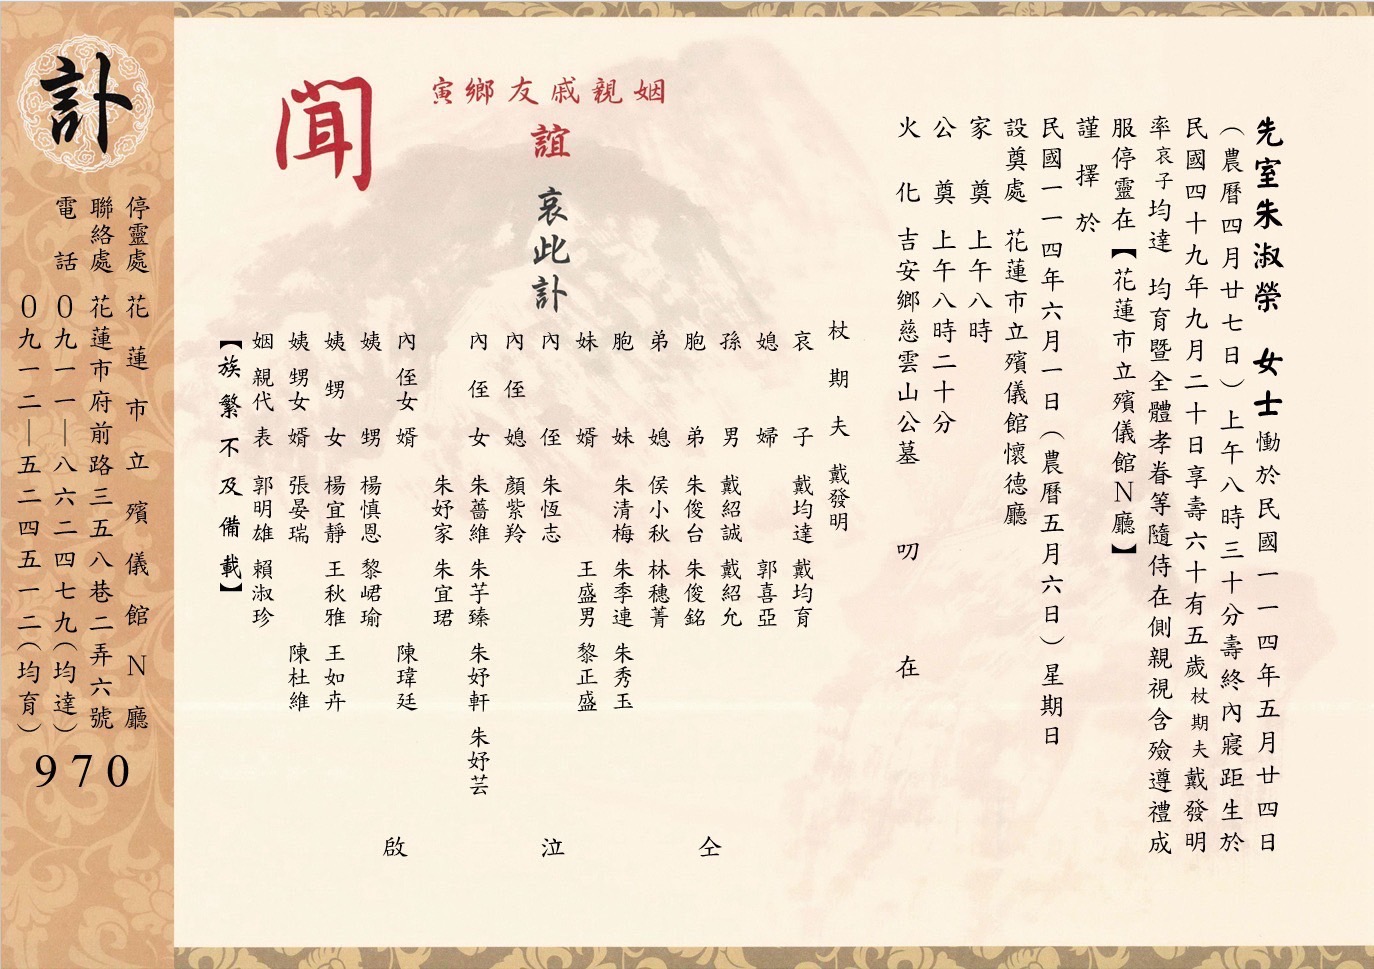 先室朱淑榮 女士慟於民國一一四年五月廿四日
（農曆四月廿七日）上午八時三十分壽終內寢距生於
民國四十九年九月二十日享壽六十有五歲杖期夫戴發明
率哀子均達 均育暨全體孝眷等隨侍在側親視含殮遵禮成
服停靈在【花蓮市立殯儀館N廳】
謹擇於
民國一一四年六月一日（農曆五月六日）星期日
設奠處 花蓮市立殯儀館懷德廳
家奠 上午八時
公奠 上午八時二十分
火化 吉安鄉慈雲山公墓
叨在
姻親戚友鄉寅
誼
哀此訃
聞
杖期夫 戴發明
哀子 戴均達 戴均育
媳婦 郭喜亞
孫男 戴紹誠 戴紹允
胞弟 朱俊台 朱俊銘
弟媳 侯小秋 林穗菁
胞妹 朱清梅 朱季連 朱秀玉
妹婿 王盛男 黎正盛
內侄 朱恆志
內侄媳 顏紫羚
內侄女 朱薔維 朱芋臻 朱妤軒 朱妤芸
朱妤家 朱宜珺
內侄女婿 陳瑋廷
姨甥 楊慎恩 黎峮瑜
姨甥女 楊宜靜 王秋雅 王如卉
姨甥女婿 張晏瑞 陳杜維
姻親代表 郭明雄 賴淑珍
【族繁不及備載】
仝泣啟
訃
停靈處 花蓮市立殯儀館N廳
聯絡處 花蓮市府前路三五八巷二弄六號
電話 0九一一—八六二四七九（均達）
0九一二—五二四五一二（均育）
970